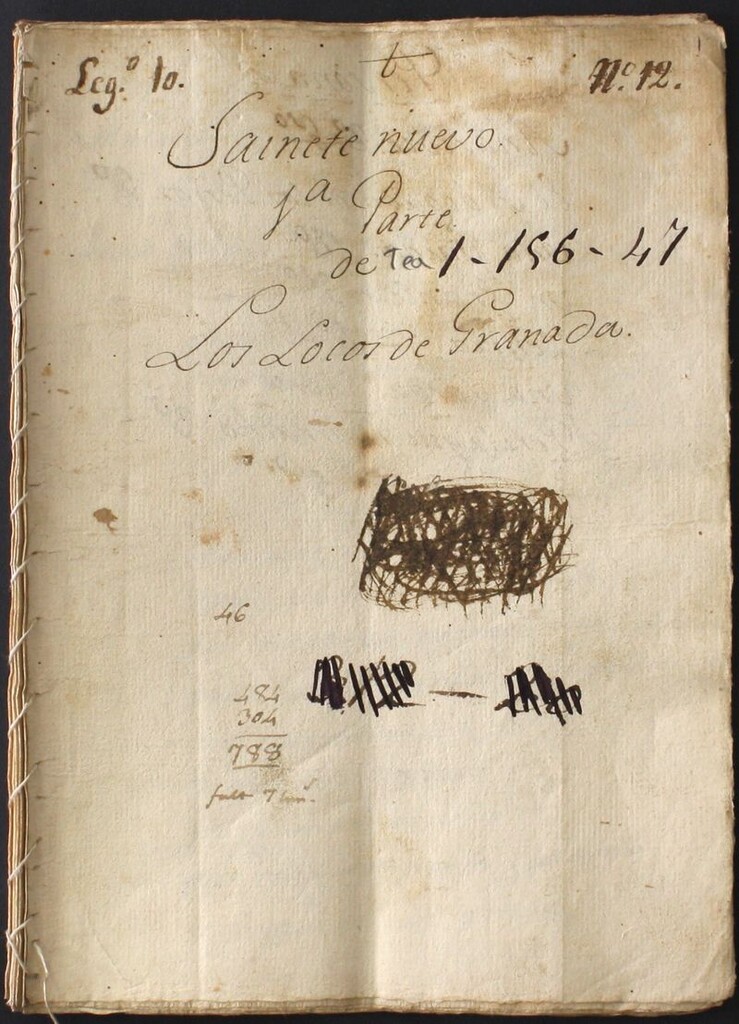 Leg.º 10.
Nº. 12.
Sainete nuevo.
1ª Parte
de Tea 1-156-47
Los Locos de Granada.
46
484
304
788
falt 7